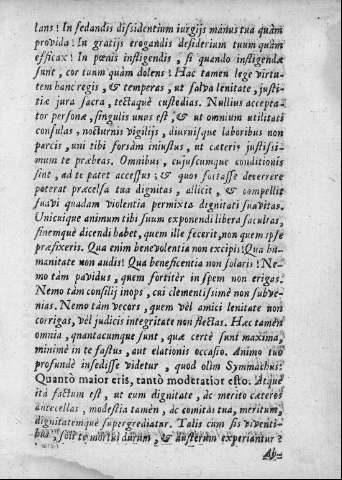 lans! In sedandis dissidentium iurgijs manus tua quàm
provida! In gratijs erogandis desiderium tuum quàm
efficax! In pœnis infligendis, si quando infligendæ
sunt, cor tuum quàm dolens! Hac tamen lege virtu-
tem hanc regis, & temperas, ut salva lenitate, justi-
tiæ jura sacra, tectaquè custodias. Nullius accepta-
tor personæ, singulis unus est, & ut omnium utilitati
consulas, nocturnis vigilijs, diurnisque laboribus non
parcis, uni tibi forsàm iniustus, ut cæteris justissi-
mum te præbeas. Omnibus, cujuscumque conditionis
sint, ad te patet accessus; & quos fortasse deverrere
poterat præcelsa tua dignitas, allicit, & compellit
suavi quadam violentia permixta dignitati suavitas.
Unicuique animum tibi suum exponendi libera facultas,
finemquè dicendi habet, quem ille fecerit, non quem ipse
præfixeris. Qua enim benevolentia non excipis! Qua hu-
manitate non audis! Qua beneficentia non solaris! Ne-
mo tàm pavidus, quem fortitèr in spem non erigas.
Nemo tàm consilij inops, cui clementissimè non subve-
nias. Nemo tàm vecors, quem vèl amici lenitate non
corrigas, vèl judicis integritate non flectas. Hæc tamèn
omnia, quantacumque sunt, quæ certè sunt maxima,
minimè in te fastus, aut elationis occasio. Animo tuo
profundè insedisse videtur, quod olim Symmachus:
Quantò maior eris, tantò moderatior esto. Atquè
ità factum est, ut eum dignitate, ac merito cæteros
antecellas, modestia tamèn, ac comitas tua, meritum,
dignitatemque supergrediatur. Talis cum sis viventi-
bus, soli te mortui durum, & austerum experiantur?
Ab-